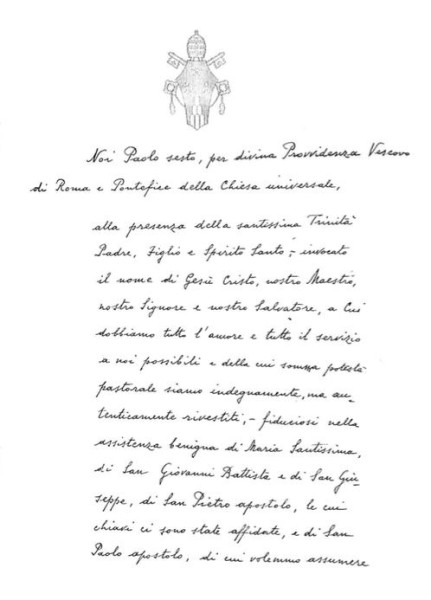 Noi Paolo sesto, per divina Provvidenza Vescovo
di Roma e Pontefice della Chiesa universale,
alla presenza della santissima Trinità
Padre, Figlio e Spirito Santo, - invocato
il nome di Gesù Cristo, nostro Maestro,
nostro Signore e nostro Salvatore, a Cui
dobbiamo tutto l'amore e tutto il servizio
a noi possibili e della cui somma potestà
pastorale siamo indegnamente, ma au-
tenticamente rivestiti, - fiduciosi nella
assistenza benigna di Maria Santissima,
di San Giovanni Battista e di San Giu-
seppe, di San Pietro apostolo, le cui
chiavi ci sono state affidate, e di San
Paolo apostolo, di cui volemmo assumere